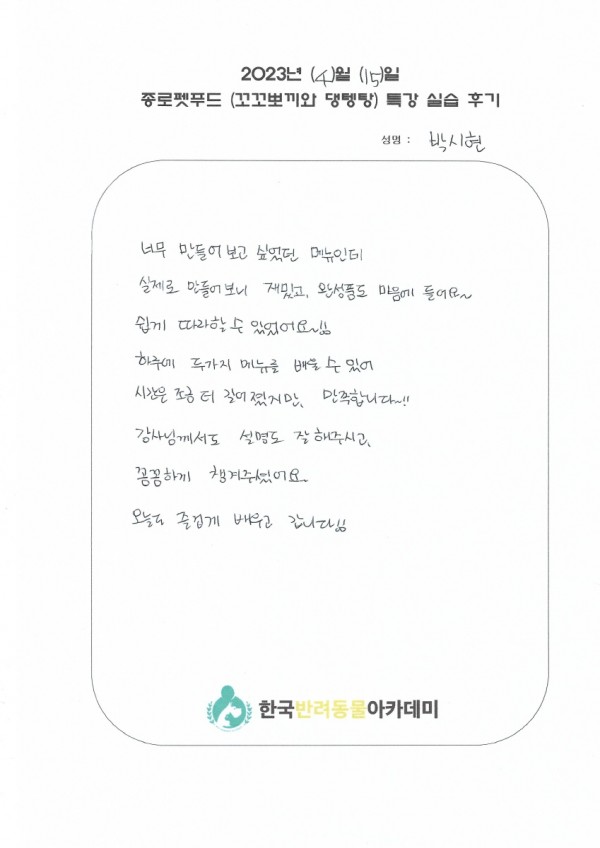 2023년 (4)월 (15)일
종로펫푸드 (꼬꼬뽀끼와 댕텡탕) 특강 실습 후기
성명 : 박시현
너무 만들어보고 싶었던 메뉴인데
실제로 만들어보니 재밌고, 완성품도 마음에 들어요~
쉽게 따라할 수 있었어요~!!
하루에 두가지 메뉴를 배울 수 있어
시간은 조금 더 길어졌지만, 만족합니다~!!
강사님께서도 설명도 잘해주시고,
꼼꼼하게 챙겨주셨어요~
오늘도 즐겁게 배우고 갑니다!!
한국반려동물아카데미